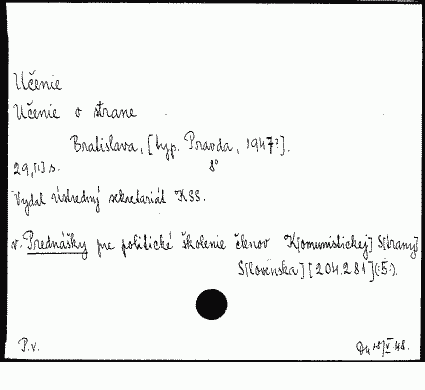 Učenie
Učenie o strane
Bratislava, [typ. Pravda, 1947?].
29,[1] s. 8°
Vydal Ústredný sekretariát KSS.
v. Prednášky pre politické školenie členov K[omunistickej] S[trany]
S[lovenska] [204.281](:5:).
P.v.